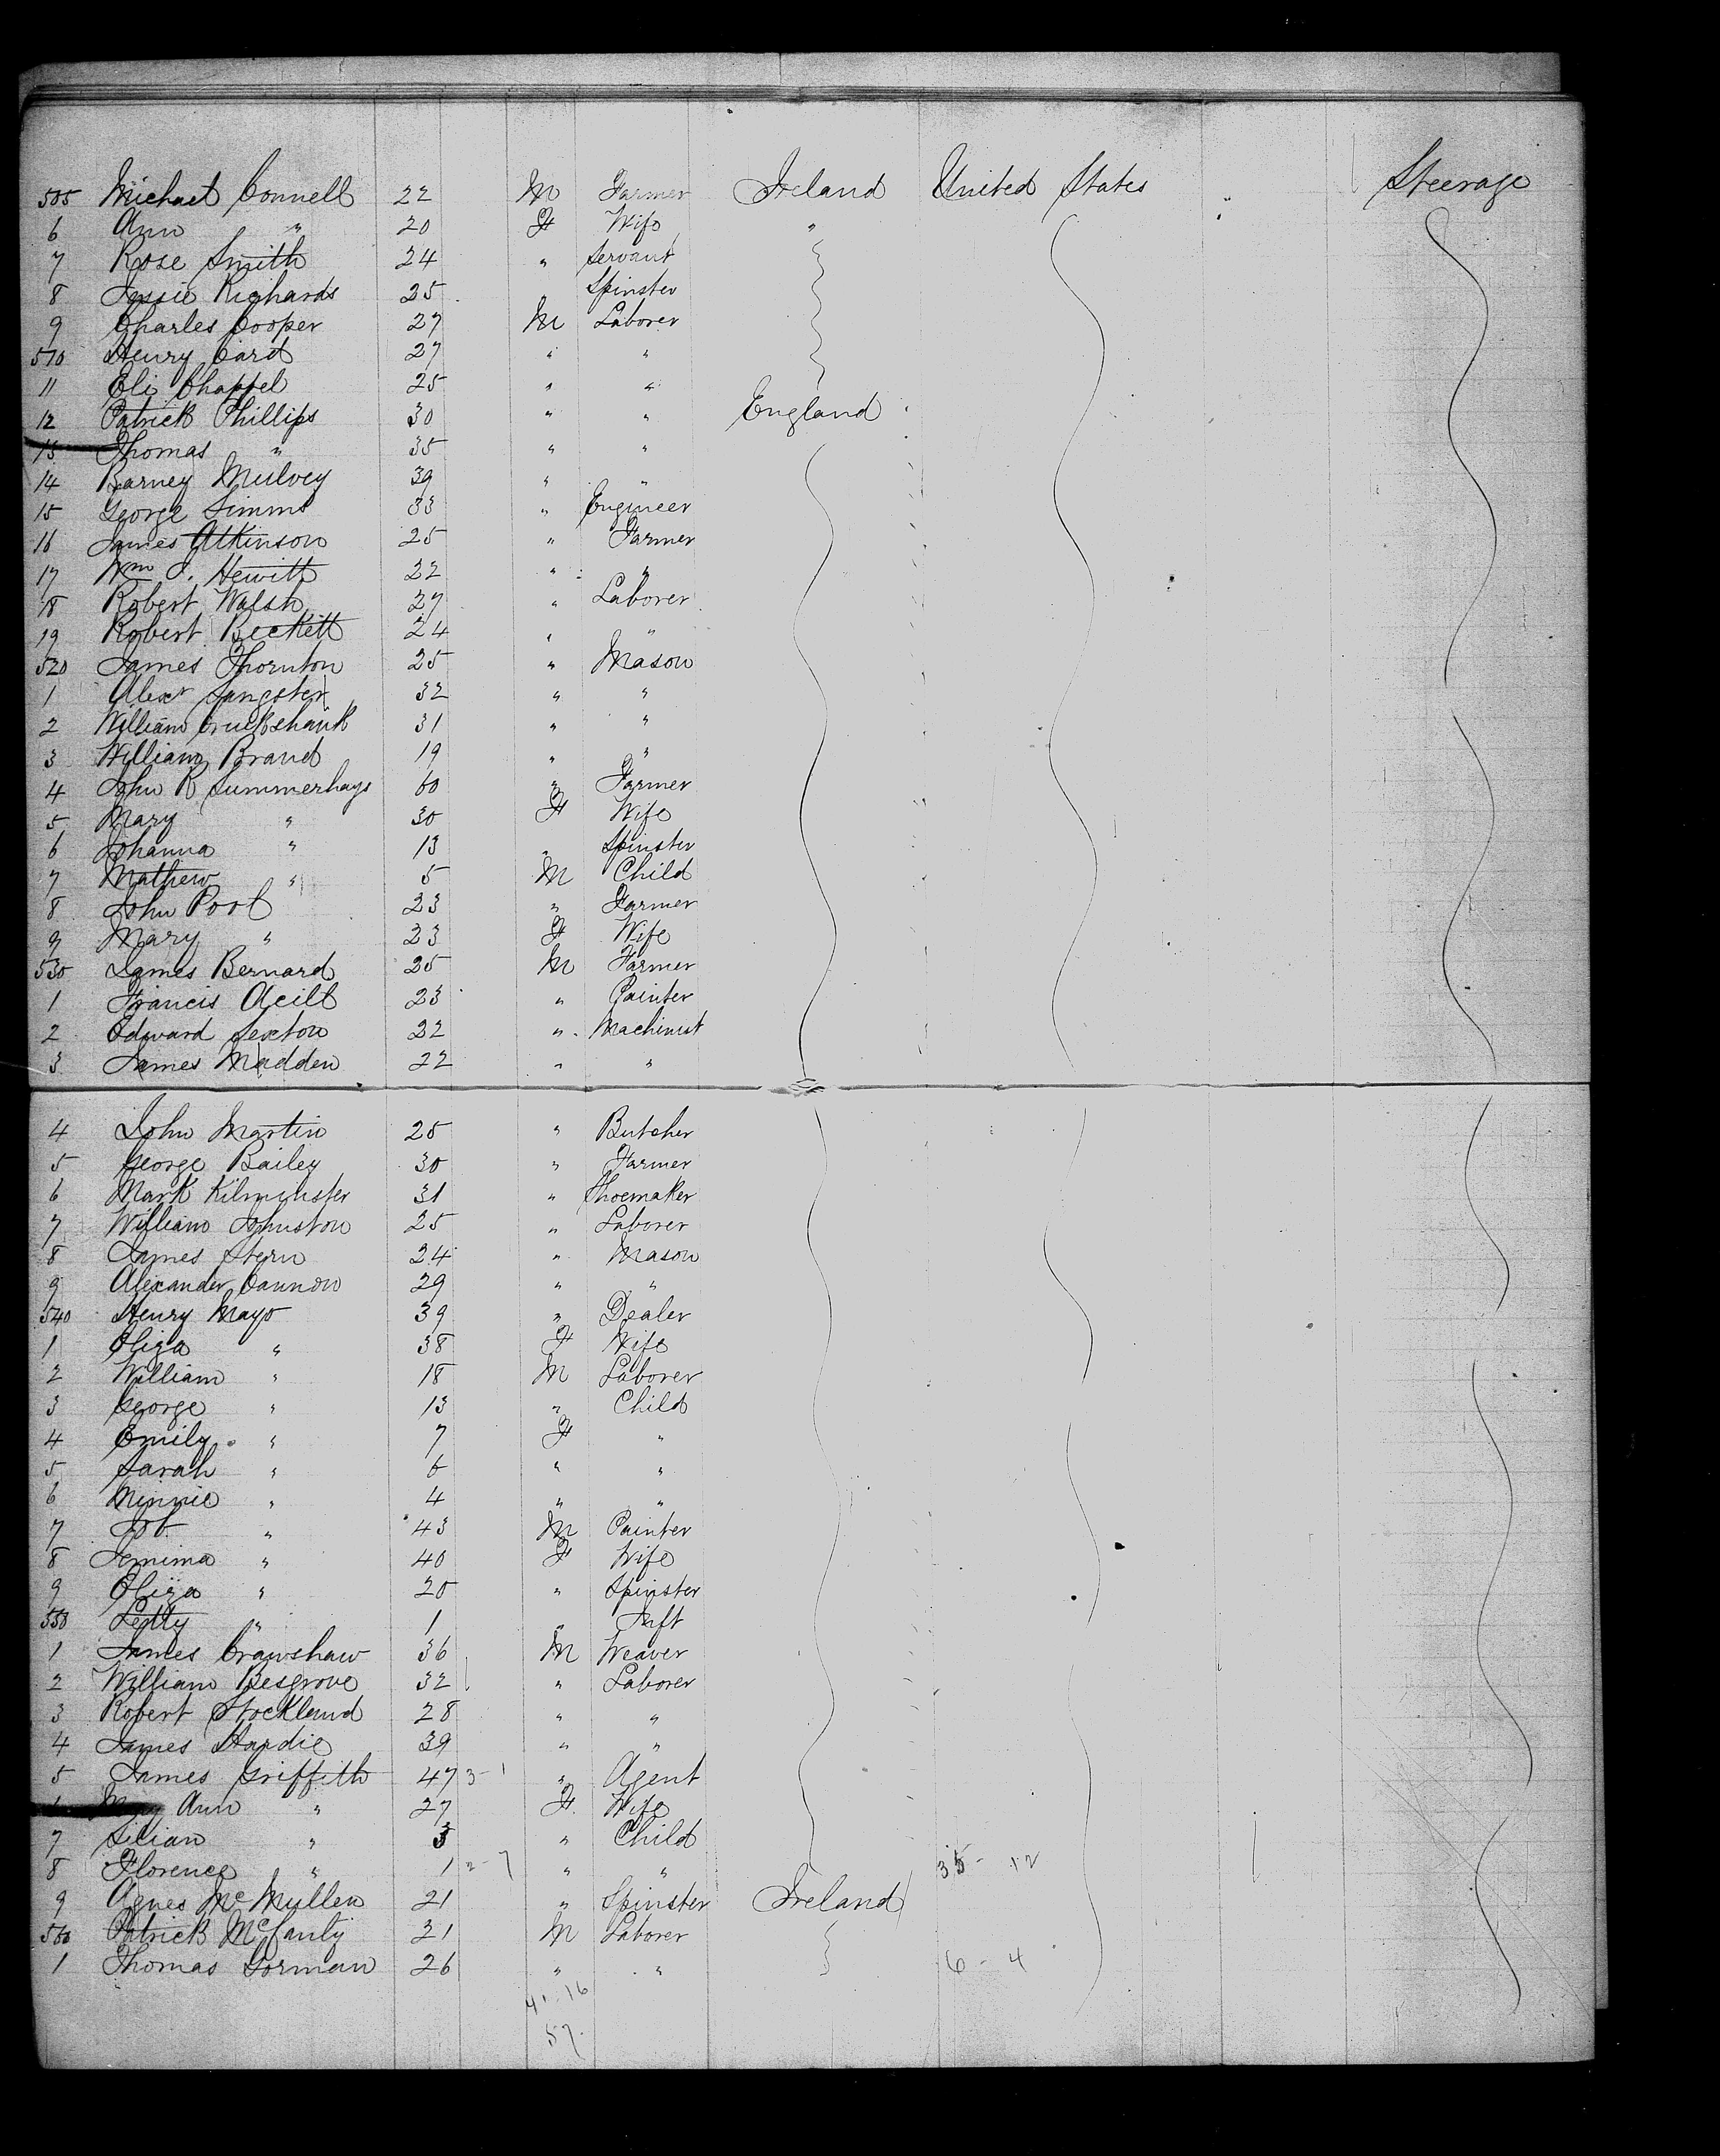 505 Michael Connell 22 M Farmer Ireland United States Steerage
6 Ann " 20 F Wife "
7 Rose Smith 24 " Servant
8 Jessie Richards 25 Spinster
9 Charles Cooper 27 M Laborer
510 Henry Card 27 " "
11 Eli Chappel 25 " "
12 Patrick Phillips 30 " " England
13 Thomas " 35 " "
14 Barney Mulvey 39 " "
15 George Simms 33 " Engineer
16 James Atkinson 25 " Farmer
17 Wm J. Hewitt 22 " "
18 Robert Walsh 27 " Laborer
19 Robert Beckett 24 " "
520 James Thornton 25 " Mason
1 Alexr Sangster 32 " "
2 William Cruikshank 31 " "
3 William Brand 19 " "
4 John R Summerhays 60 " Farmer
5 Mary " 30 F Wife
6 Johanna " 13 " Spinster
7 Mathew " 5 M Child
8 John Pool 23 " Farmer
9 Mary " 23 F Wife
530 James Bernard 25 M Farmer
1 Francis 23 " Painter
2 Edward Sexton 22 " Machinist
3 James Madden 22 " "
4 John Martin 25 " Butcher
5 George Bailey 30 " Farmer
6 Mark Kilminster 31 " Shoemaker
7 William Johnston 25 " Laborer
8 James Stern 24 " Mason
9 Alexander Cannon 29 " "
540 Henry Mayo 39 " Dealer
1 Eliza " 38 F Wife
2 William " 18 M Laborer
3 George " 13 " Child
4 Emily " 7 F "
5 Sarah " 6 " "
6 Minnie " 4 " "
7 Job " 43 M Painter
8 Jemima " 40 F Wife
9 Eliza " 20 " Spinster
550 Letty " 1 " Inft
1 James Crawshaw 36 M Weaver
2 William Besgrove 32 " Laborer
3 Robert Stockland 28 " "
4 James Hardie 39 " "
5 James Griffith 47 3 - 1 " Agent
6 Mary Ann " 27 F Wife
7 Lilian " 3 " Child
8 Florence " 1 2 - 7 " " 35 - 12
9 Agnes McMullen 21 " Spinster Ireland
560 Patrick McCanty 21 M Laborer
1 Thomas Gorman 26 " " 6 - 4
41 - 16
57